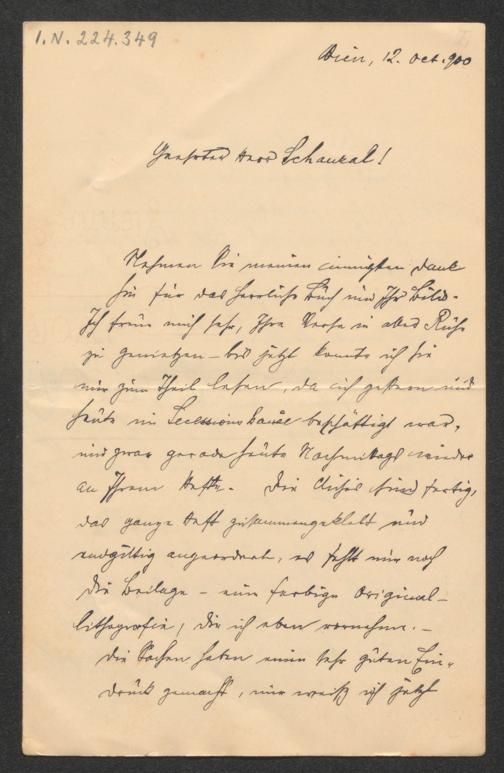 I.N. 224.349
Wien, 12. Oct. 900
Geehrter Herr Schaukal!
Nehmen Sie meinen innigsten Dank
hin für das herrliche Buch und Ihr Bild.
Ich freue mich sehr, Ihre Verse in aller Ruhe
zu genießen – bis jetzt konnte ich sie
nur zum Theil lesen, da ich gestern und
heute im Secessions Hause beschäftigt war,
und zwar gerade heute Nachmittags wieder
an Ihrem Hefte. Die Clichés sind fertig,
das ganze Heft zusammengeklebt und
endgiltig angeordnet, es fehlt nur noch
die Beilage – eine farbige Original-
lithografie, die ich eben vornehme. –
Die Sachen haben einen sehr guten Ein-
druck gemacht, nur weiß ich jetzt